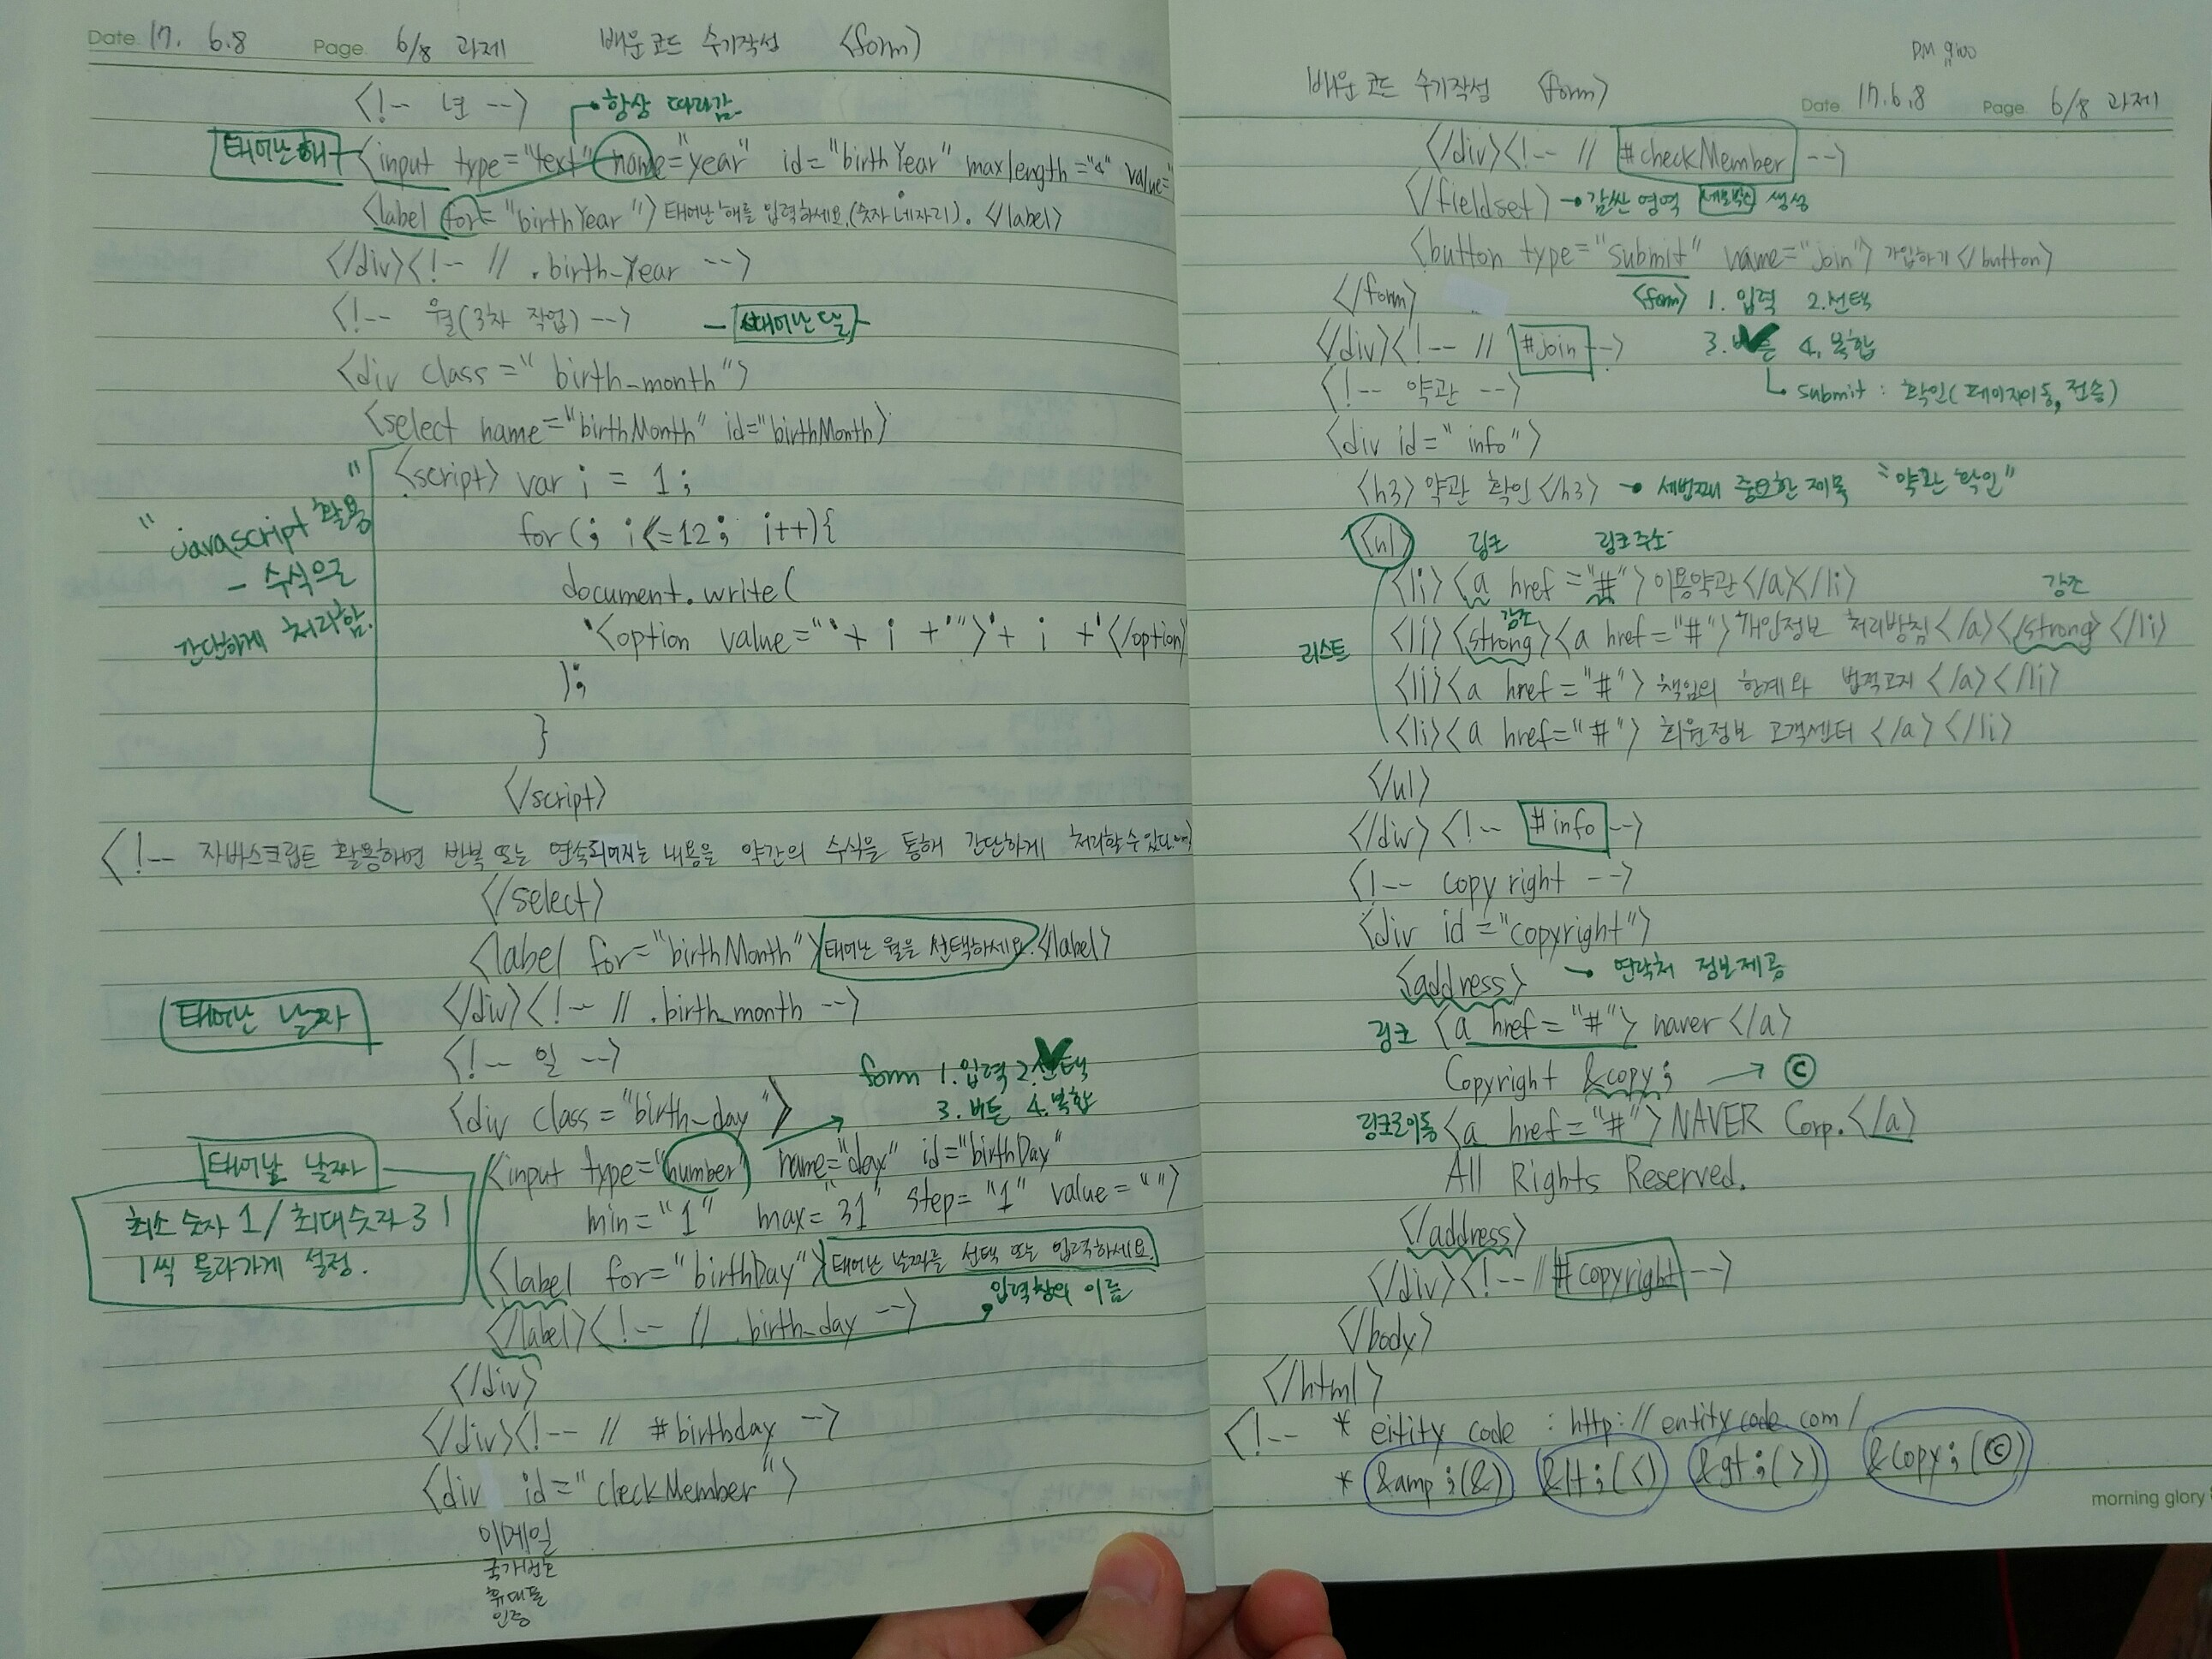 Date. 17. 6.8 Page 6/8 과제 배운 코드 수기작성 <form>
<!-- 년 --> 항상 따라감
태어난 해 <input type="text" name="year" id="birthYear" maxlength="4" value="
<label for="birthYear"> 태어난 해를 입력하세요.(숫자 네자리). </label>
</div><!-- // .birth-Year -->
<!-- 월(3차 작업) --> 태어난 달
<div class="birth-month">
<select name="birthMonth" id="birthMonth>
<script> var i = 1;
for(; i<=12; i++){
document.write(
'<option value="'+ i +'">'+ i +'</option>
);
}
</script>
"javascript 활용"
- 수식으로
간단하게 처리함.
<!-- 자바스크립트 활용하면 반복 또는 연속되어지는 내용을 약간의 수식을 통해 간단하게 처리할수있다. -->
</select>
<label for="birthMonth">태어난 월을 선택하세요.</label>
태어난 날짜 </div><!-- // .birth_month -->
<!-- 일 -->
form 1.입력 2.선택
3.버튼 4.복합
<div class="birth_day">
태어난 날짜 <input type="number" name="day" id="birthDay"
min="1" max="31" step="1" value="">
최소 숫자 1/최대숫자 31
1씩 올라가게 설정.
<label for="birthDay">태어난 날짜를 선택 또는 입력하세요.
입력창의 이름
</label><!-- // .birth_day -->
</div>
</div><!-- // #birthday -->
<div id="cleckMember">
이메일
국가번호
휴대폰
인증
DM 9100
배운 코드 수기작성 <form> Date. 17.6.8 Page 6/8 과제
</div><!-- // #checkMember -->
</fieldset> → 감싼 영역 생성
<button type="submit" name="join"> 가입하기 </button>
</form> <form> 1. 입력 2.선택
</div><!-- // #join --> 3.버튼 4.복합
<!-- 약관 --> submit : 확인(페이지이동, 전송)
<div id="info">
<h3> 약관 확인 </h3> → 세번째 중요한 제목 "약관 확인"
<ul> 링크 링크주소
<li><a href="#"> 이용약관 </a></li>
강조 강조
리스트 <li><strong><a href="#"> 개인정보 처리방침 </a></strong></li>
<li><a href="#"> 책임의 한계와 법적고지 </a></li>
<li><a href="#"> 회원정보 고객센터 </a></li>
</ul>
</div> <!-- #info -->
<!-- copyright -->
<div id="copyright">
<address> → 연락처 정보제공
링크 <a href="#"> naver </a>
Copyright &copy; → ©
링크로이동 <a href="#">NAVER Corp.</a>
All Rights Reserved.
</address>
</div><!-- // #copyright -->
</body>
</html>
<!-- * eitity code : http://entitycode.com/
* &amp;(&) &lt;(<) &gt;(>) &copy;(©)
morning glory